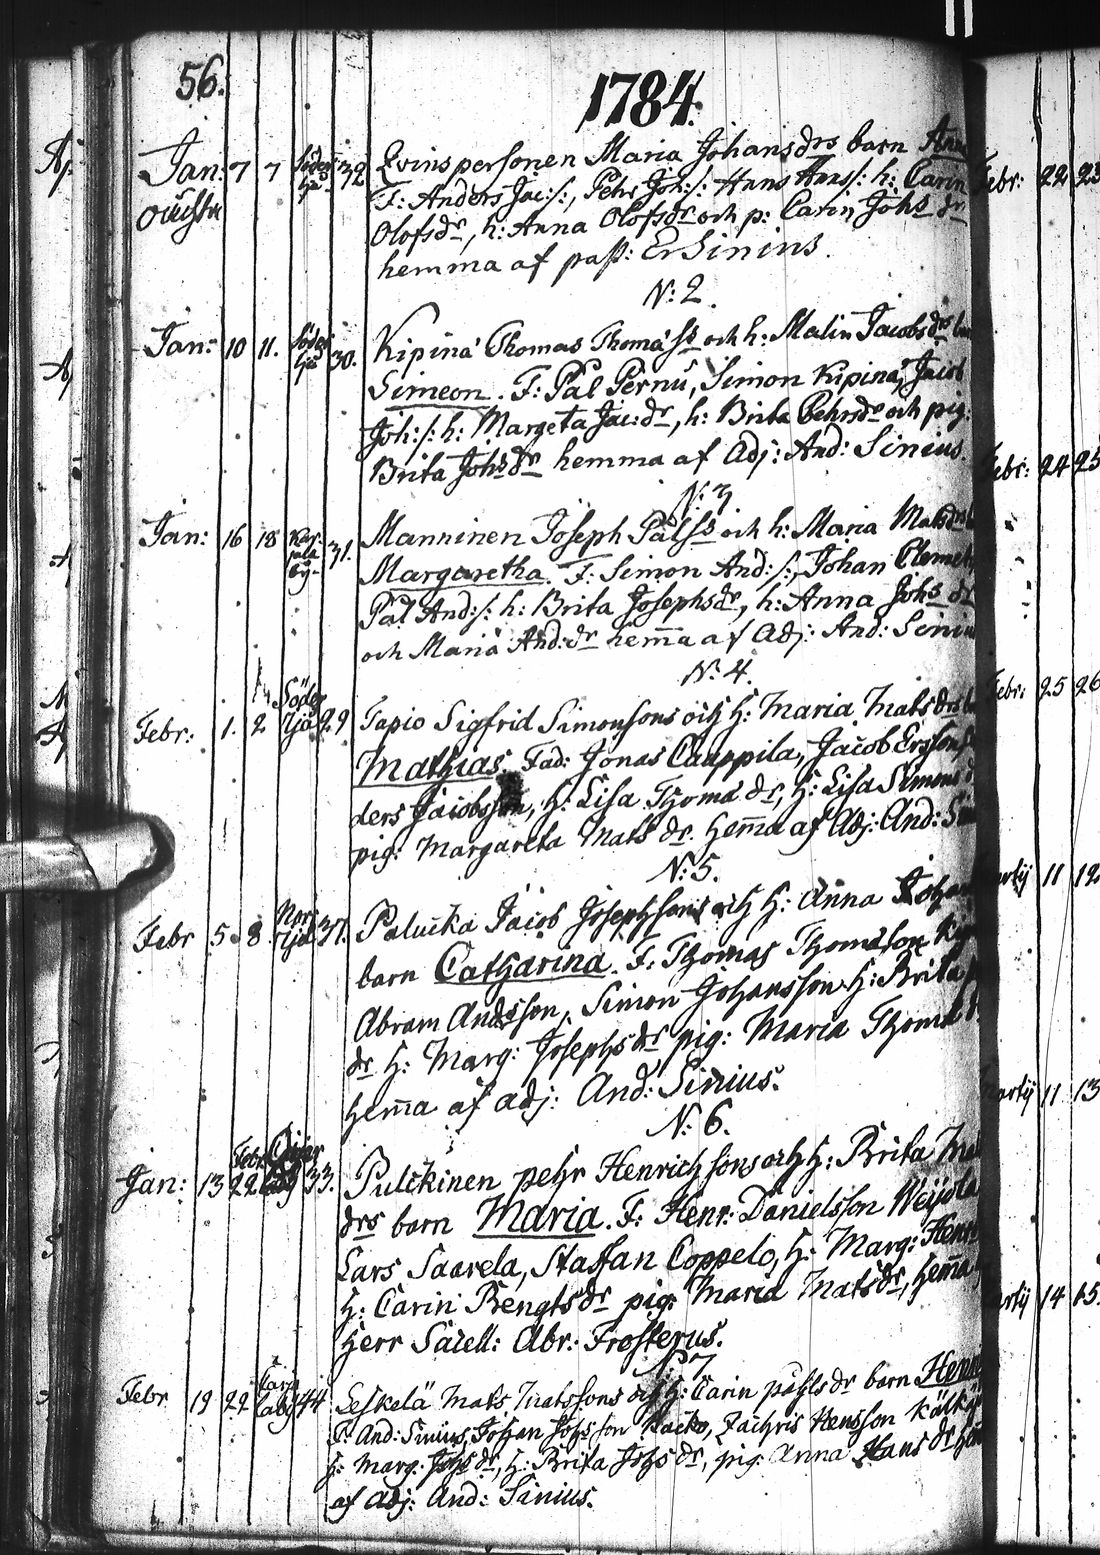 56.
1784.
Jan: 7 7 Söder 32 Qvinspersonen Maria Johansdrs barn Anna
F: Anders Jac:/:, Pehr Joh:/: Hans Hans/: h: Carin
Olofsdr, h: Anna Olofsdr och p: Carin Johs dr
hemma af past: Er Sinius.
N: 2.
Jan: 10 11. Söder 30. Kipinä Thomas Thomass och h: Malin Jacobsdrs
Simeon. F: Pål Pernu, Simon Kipinä, Jacob
Joh:/: h: Margeta Jac: dr, h: Brita Pehrsdr och pig:
Brita Johs dr hemma af Adj: And: Sinius.
N: 3
Jan: 16 18 Kar jala by 31. Manninen Joseph Pålss och h: Maria Matsdrs
Margaretha. F: Simon And:/:, Johan Clemet
Pål And:/: h: Brita Josephsdr, h: Anna Johs dr
och Maria And: dr hem̄a af Adj: And: Sinius
N: 4.
Febr: 1. 2 Söder 29 Tapio Sigfrid Simonsons och H: Maria Matsdrs
Mathias. Fad: Jonas Cauppila, Jacob Ersson,
ders Jacobsson, H: Lisa Thoma dr, H: Lisa Simons
pig: Margareta Mats dr. Hem̄a af Adj: And:
N: 5.
Febr 5 8 Nor 37. Palucka Jacob Josephsons och H: Anna Johan
barn Catharina. F: Thomas Thomasson
Abram Andsson, Simon Johansson H: Brita
dr H: Marg: Josephsdr pig: Maria Thoma
hem̄a af adj: And: Sinius.
N: 6.
Jan: 13 Febr 22 33. Pulckinen pehr Henrichsons och H: Brita
drs barn Maria. F: Henr: Danielsson Weijola
Lars Saarela, Staffan Coppelo, H: Marg: Henr
H: Carin Bengts dr pig: Maria Matsdr, hem̄a
Herr Sacell: Abr: Frosterus.
N: 7
Febr 19 22 44 Leskelä Mats Matssons och H: Carin påhls dr barn
F: And: Sinius, Johan Johsson, Zachris Hensson
H: Marg: Johs dr, H: Brita Johs dr, pig: Anna Hans dr
af adj: And: Sinius.
Febr: 22 23
Febr: 24 25
Febr: 25 26
11 12
11 13
14 15.